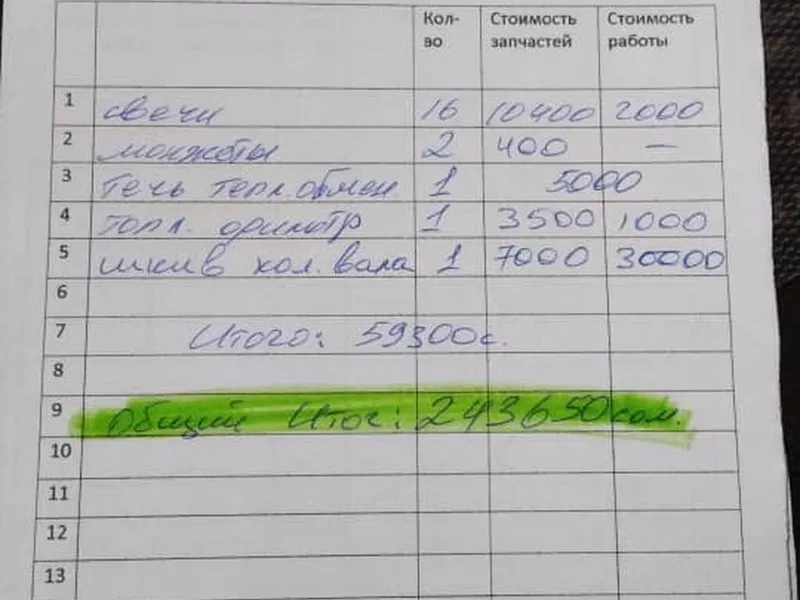 Кол-во Стоимость запчастей Стоимость работы
1 свечи 16 10400 2000
2 манжеты 2 400 —
3 течь тепл.обмен. 1 5000
4 топл. фильтр 1 3500 1000
5 шкив кол.вала 1 7000 30000
6
7 Итого: 59300с.
8
9 Общий Итог: 243650сом.
10
11
12
13